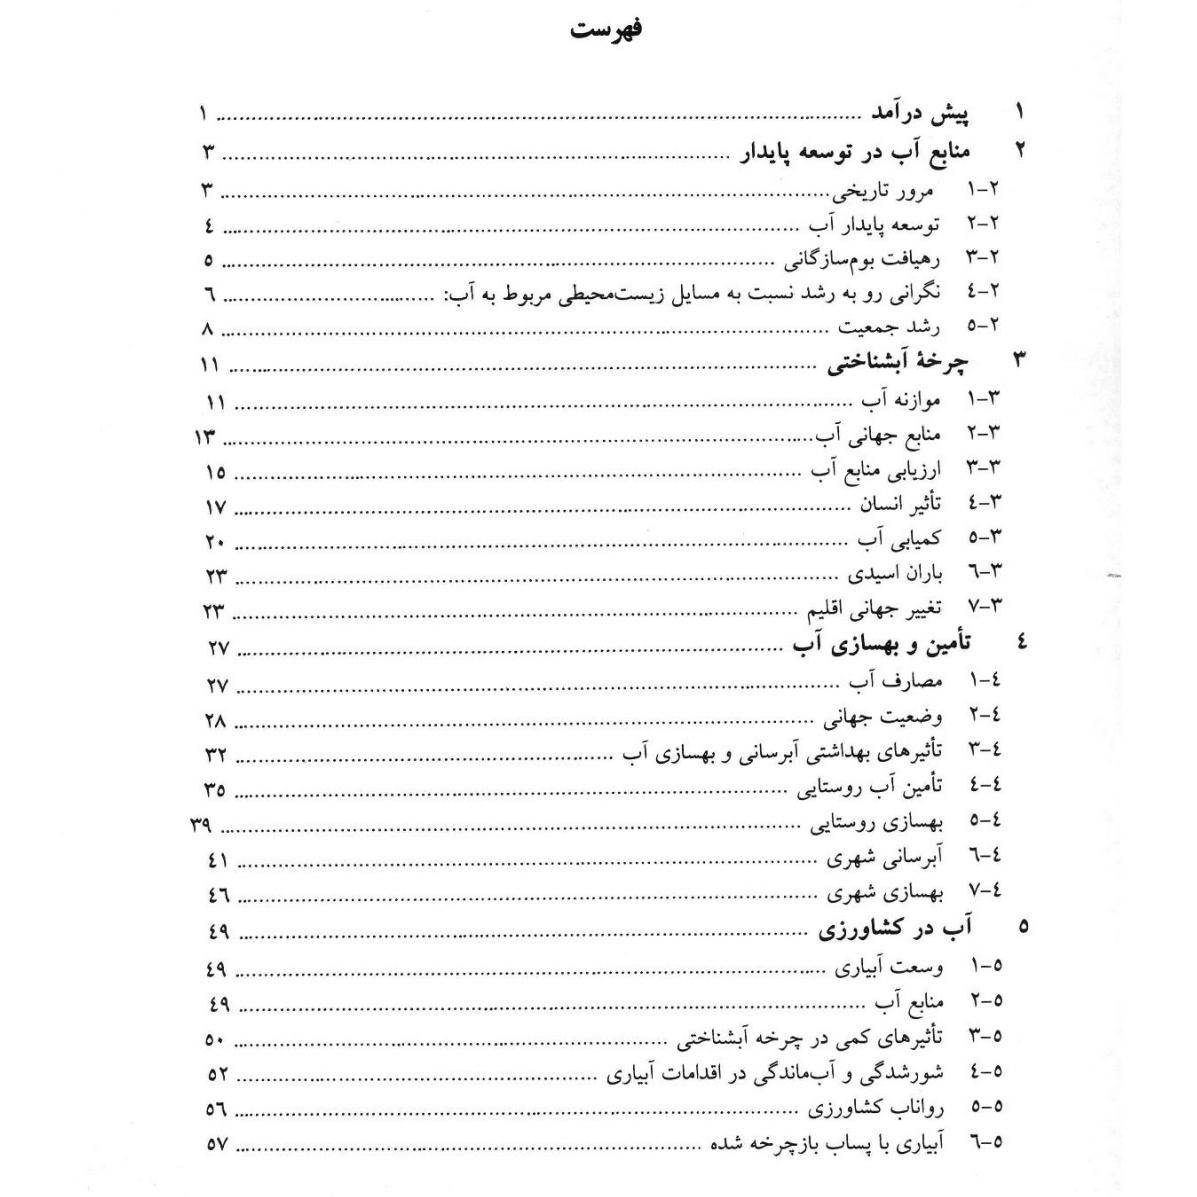 فهرست
۱ پیش درآمد ........ ۱
۲ منابع آب در توسعه پایدار ........ ۳
۱-۲ مرور تاریخی ........ ۳
۲-۲ توسعه پایدار آب ........ ٤
۳-۲ رهیافت بوم‌سازگانی ........ ٥
٤-۲ نگرانی رو به رشد نسبت به مسایل زیست‌محیطی مربوط به آب: ........ ٦
٥-۲ رشد جمعیت ........ ۸
۳ چرخهٔ آبشناختی ........ ۱۱
۱-۳ موازنه آب ........ ۱۱
۲-۳ منابع جهانی آب ........ ۱۳
۳-۳ ارزیابی منابع آب ........ ۱٥
٤-۳ تأثیر انسان ........ ۱۷
٥-۳ کمیابی آب ........ ۲۰
٦-۳ باران اسیدی ........ ۲۳
۷-۳ تغییر جهانی اقلیم ........ ۲۳
٤ تأمین و بهسازی آب ........ ۲۷
۱-٤ مصارف آب ........ ۲۷
۲-٤ وضعیت جهانی ........ ۲۸
۳-٤ تأثیرهای بهداشتی آبرسانی و بهسازی آب ........ ۳۲
٤-٤ تأمین آب روستایی ........ ۳٥
٥-٤ بهسازی روستایی ........ ۳۹
٦-٤ آبرسانی شهری ........ ٤۱
۷-٤ بهسازی شهری ........ ٤٦
٥ آب در کشاورزی ........ ٤۹
۱-٥ وسعت آبیاری ........ ٤۹
۲-٥ منابع آب ........ ٤۹
۳-٥ تأثیرهای کمی در چرخه آبشناختی ........ ٥۰
٤-٥ شورشدگی و آب‌ماندگی در اقدامات آبیاری ........ ٥۲
٥-٥ رواناب کشاورزی ........ ٥٦
٦-٥ آبیاری با پساب بازچرخه شده ........ ٥۷